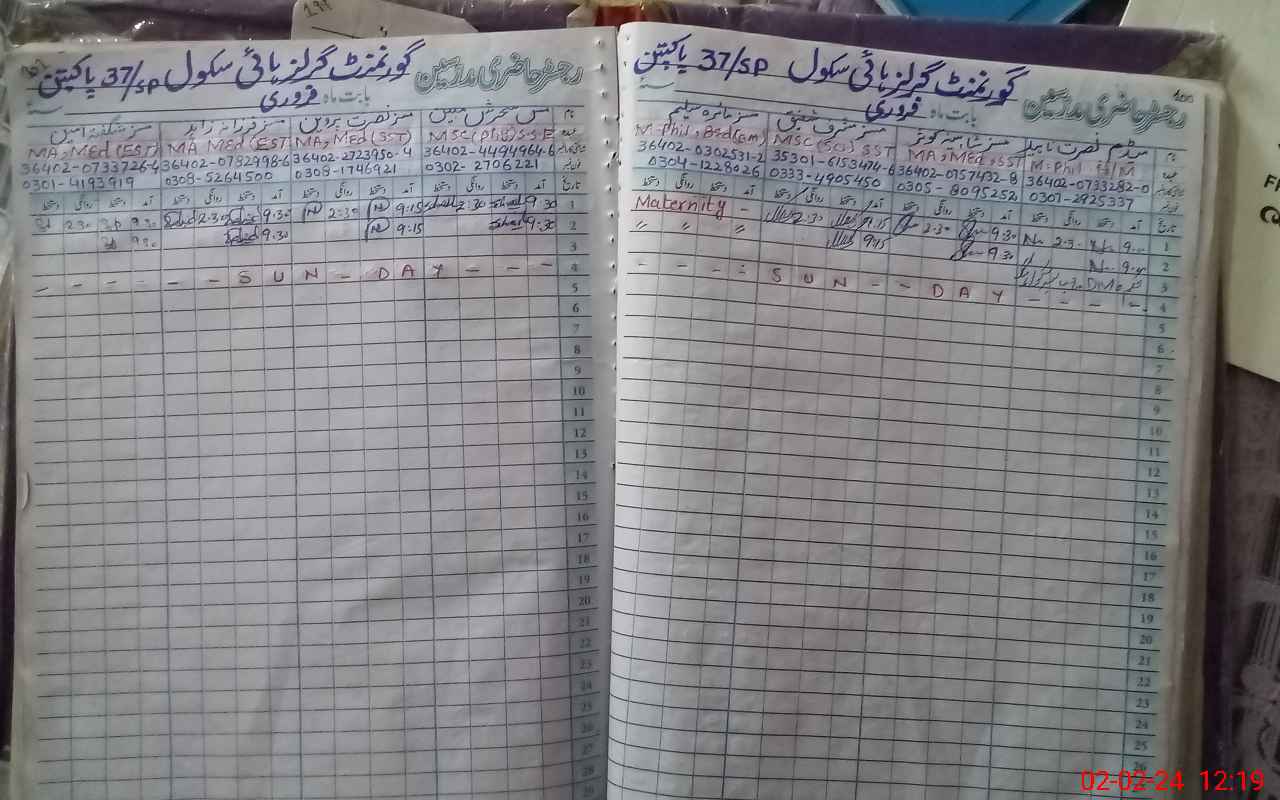 رجسٹر حاضری مدرسین گورنمنٹ گرلز ہائی سکول 37/SP پاکپتن
بابت ماہ فروری
100
نام میڈم نصرت ناہید مسز شاہینہ کوثر مسز مشرف شفیق مسز مائرہ سلیم
M.Phil H/M MA, MEd, SST MSC (SCI) SST M.Phil, B.Sd(em)
36402-0733282-0 36402-0757432-8 35301-6153474-6 36402-0302531-2
0301-2925337 0305-8095252 0333-4905450 0304-1228026
تاریخ آمد دستخط روانگی دستخط آمد دستخط روانگی دستخط آمد دستخط روانگی دستخط آمد دستخط روانگی دستخط
1 9.00 2.30 9.30 2.30 9.15 2.30 Maternity -
2 9.00 9.30 9.15 〃 〃 〃
3
4 - - - - S U N - - D A Y - - - -
5
6
7
8
9
10
11
12
13
14
15
16
17
18
19
20
21
22
23
24
25
26
رجسٹر حاضری مدرسین گورنمنٹ گرلز ہائی سکول 37/SP پاکپتن
بابت ماہ فروری
نام مس سحرش مبین مسز نصرت پروین مسز فرزانہ زاہد مسز شگفتہ امین
MSC (Phy) S.S.E MA, MEd (SST) MA MEd (EST MA, MEd (EST)
36402-4494964-6 36402-2723950-4 36402-0732998-6 36402-0733726-4
0302-2706221 0308-1746921 0308-5264500 0301-4193919
تاریخ آمد دستخط روانگی دستخط آمد دستخط روانگی دستخط آمد دستخط روانگی دستخط آمد دستخط روانگی دستخط
1 9.30 2.30 9.15 2.30 9.30 2.30 9.30 2.30
2 9.30 9.15 9.30 9.30
3
4 - - - - - - S U N - D A Y - - -
5
6
7
8
9
10
11
12
13
14
15
16
17
18
19
20
21
22
23
24
25
26
27
28
29
199
02-02-24 12:19